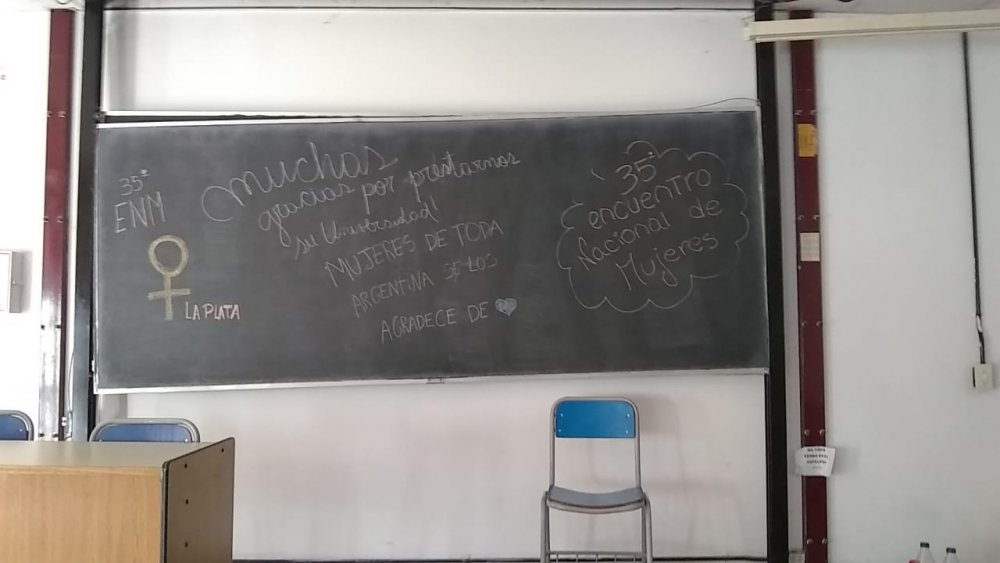 35°
ENM
LA PLATA
muchas
gracias por prestarnos
su Universidad
MUJERES DE TODA
ARGENTINA SE LOS
AGRADECE DE
35°
encuentro
Nacional de
Mujeres